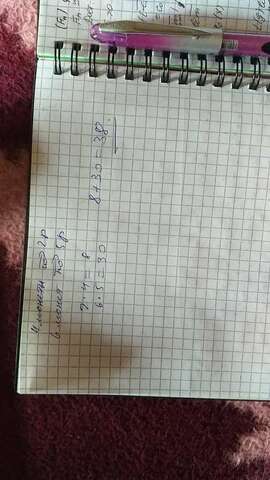 4 монеты по 2 р
6 монет по 5 р
2 · 4 = 8
6 · 5 = 30
8 + 30 = 38